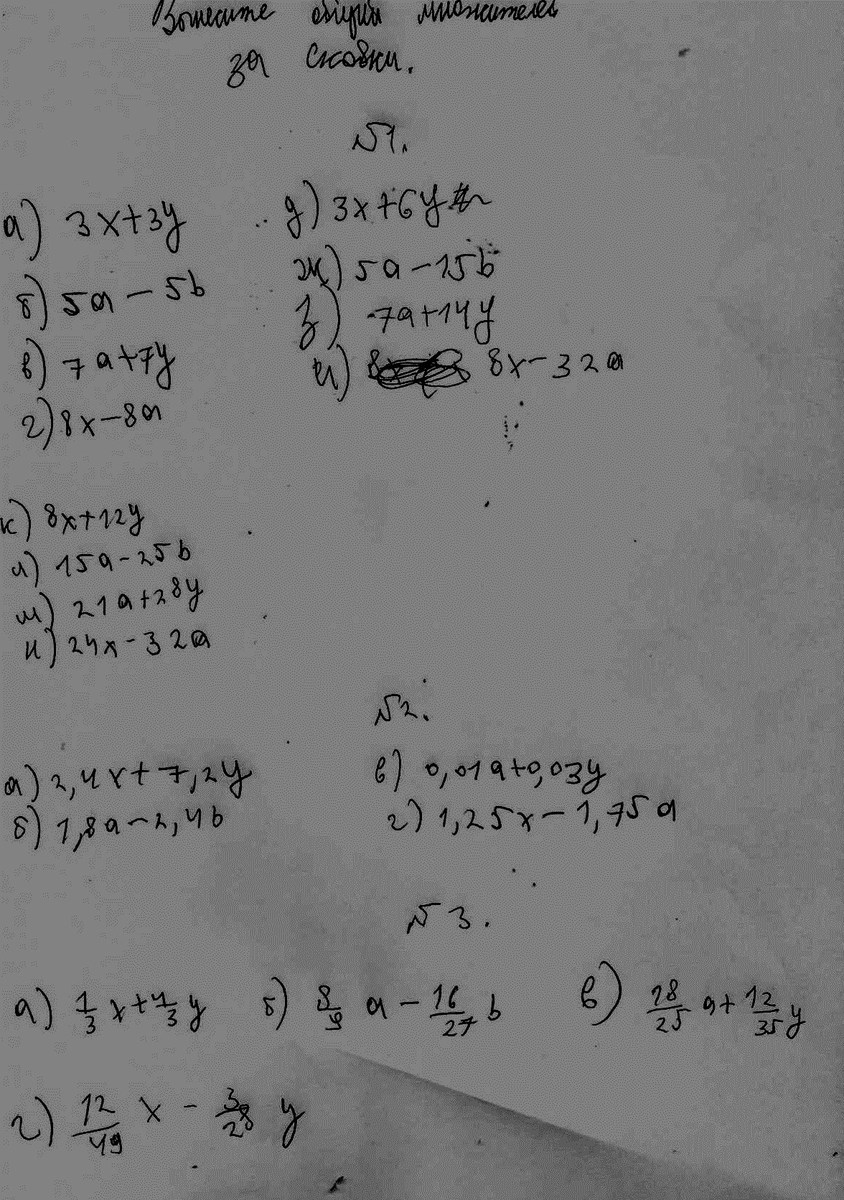 Вынесите общий множитель
за скобки.
№1.
а) 3x+3y
б) 5a – 5b
в) 7a+7y
г) 8x–8a
д) 3x+6y
ж) 5a–15b
з) 7a+14y
и) 8x–32a
к) 8x+12y
л) 15a–25b
м) 21a+28y
н) 24x–32a
№2.
а) 2,4x+7,2y
б) 1,8a–2,4b
в) 0,01a+0,03y
г) 1,25x–1,75a
№3.
а) 1/3 x + 4/3 y б) 8/9 a – 16/27 b в) 28/25 a + 12/35 y
г) 12/49 x – 3/28 y